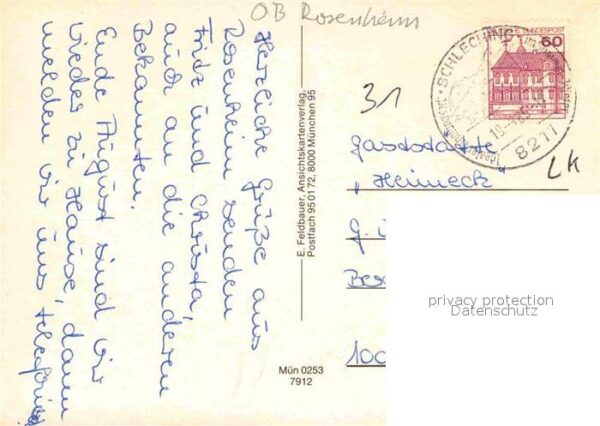 OB Rosenheim
Herzliche Grüße aus
Rosenheim senden
Fritz und Christa,
auch an die anderen
Bekannten.
Ende August sind wir
wieder zu Hause, dann
melden wir uns telefonisch
E. Feldbauer, Ansichtskartenverlag,
Postfach 95 01 72, 8000 München 95
Mün 0253
7912
BUNDESPOST
60
SCHLECHING
8211
31
Gaststätte
"Heimeck"
LK
G. i
Bes
100
privacy protection
Datenschutz